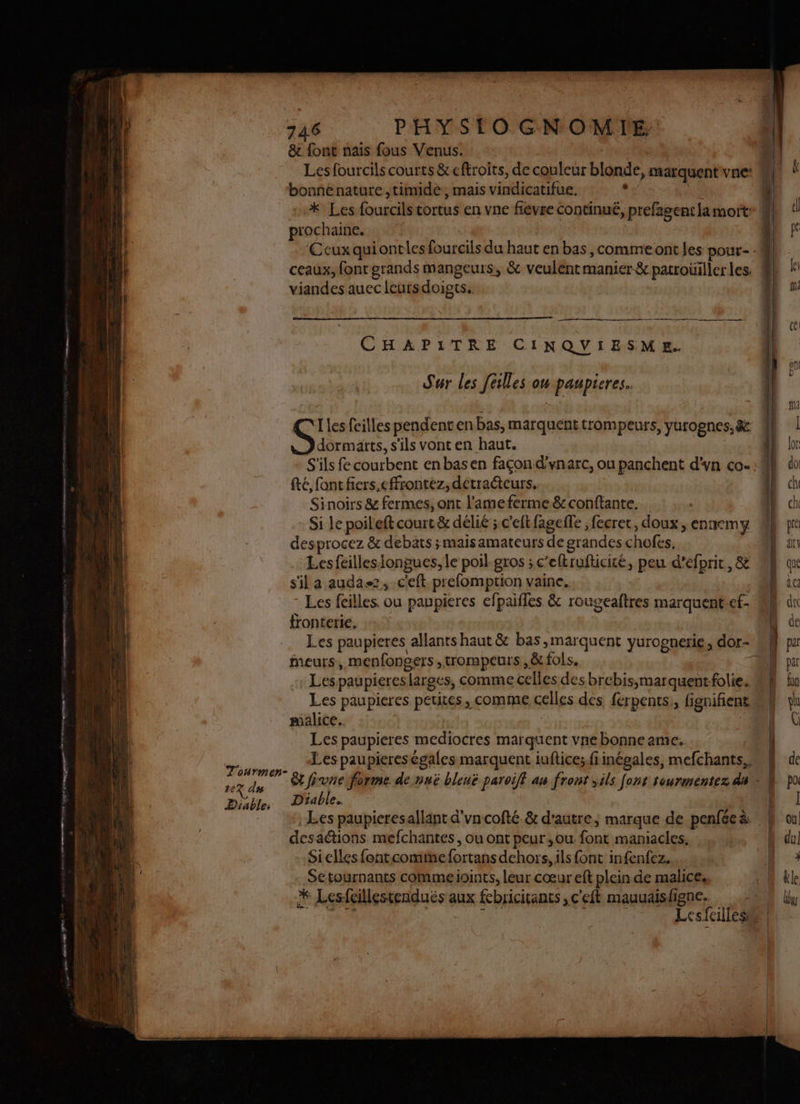 746 PHYSIOGNOMIE
& ſont nais ſous Venus.
Les ſourcils courts & eſtroits, de couleur blonde, marquent vne
bonne nature, timide, mais vindicatiſue.
* Les ſourcils tortus en vne fiévre continuë, preſagent la mort
prochaine.
Ceux qui ont les ſourcils du haut en bas, comme ont les pour-
ceaux, ſont grands mangeurs, & veulent manier & patroüiller les
viandes auec leurs doigts.
CHAPITRE CINQVIESME.
Sur les ſeilles ou paupieres.
SI les ſeilles pendent en bas, marquent trompeurs, yurognes, &
dormarts, s'ils vont en haut.
S'ils ſe courbent en bas en façon d'vn arc, ou panchent d'vn co-
ſté, ſont fiers, effrontez, detracteurs.
Si noirs & fermes, ont l'ame ferme & conſtante.
Si le poil eſt court & délié ; c'eſt ſageſſe, ſecret, doux, ennemy
des procez & debats ; mais amateurs de grandes choſes.
Les ſeilles longues, le poil gros ; c'eſt ruſticité, peu d'eſprit, &
s'il a audace, c'eſt preſomption vaine.
Les ſeilles ou paupieres eſpaiſſes & rougeaſtres marquent ef-
fronterie.
Les paupieres allants haut & bas, marquent yurognerie, dor-
meurs, menſongers, trompeurs, & fols.
Les paupieres larges, comme celles des brebis, marquent folie.
Les paupieres petites, comme celles des ſerpents, ſignifient
malice.
Les paupieres mediocres marquent vne bonne ame.
Les paupieres égales marquent iuſtice; ſi inégales, meſchants,
& ſi vne forme de nuë bleuë paroiſt au front, ils ſont tourmentez du
Diable.
Tourmen-
tez du
Diable.
Les paupieres allant d'vn coſté & d'autre, marque de penſée à
des actions meſchantes, ou ont peur, ou ſont maniacles.
Si elles ſont comme fort ans dehors, ils ſont inſenſez.
Se tournants comme ioints, leur cœur eſt plein de malice.
* Les ſeilles tenduës aux febricitants, c'eſt mauuais ſigne.
Les ſeilles